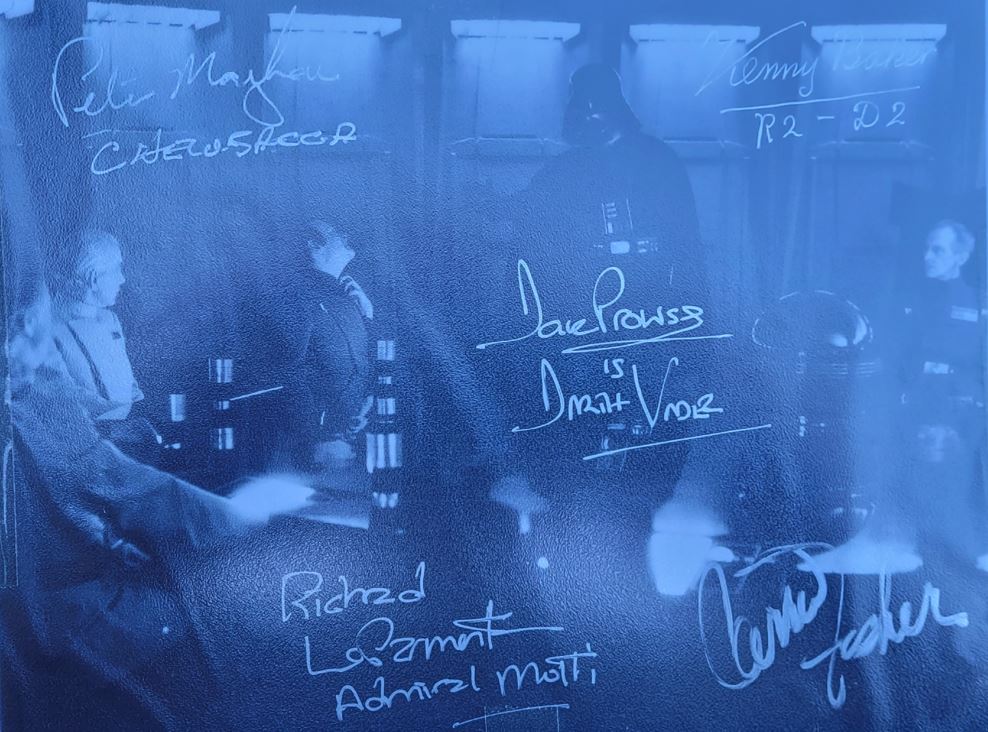 Peter Mayhew
CHEWBACCA
Kenny Baker
R2-D2
Dave Prowse
IS
DARTH VADER
Richard
LeParmentier
Admiral Motti
Carrie Fisher